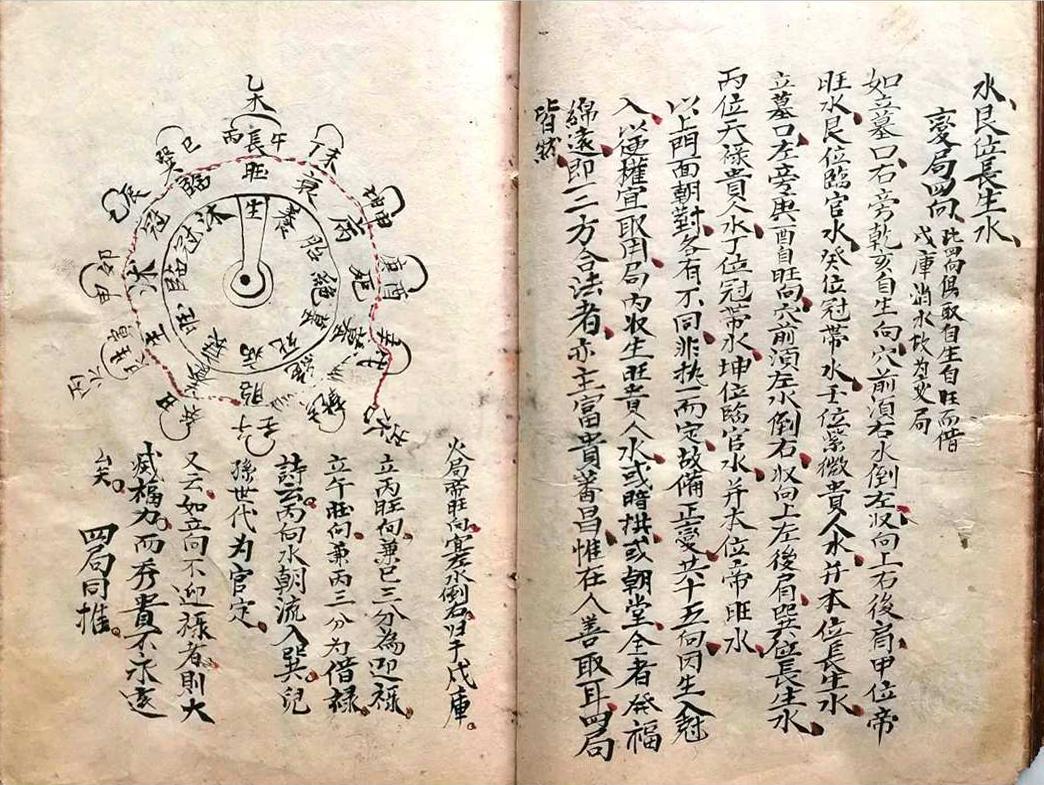 水艮位長生水
變局四向
此四局俱取自生自旺而借
戊庫消水故为火局
如立墓口右旁乾亥自生向穴前須右水倒左収向上右後肩甲位帝
旺水艮位臨官水癸位冠帶水壬位紫微貴人水并本位長生水
立墓口左旁庚酉自旺向穴前須左水倒右収向上左後肩巽位長生水
丙位天祿貴人水丁位冠帶水坤位臨官水并本位帝旺水
以上門面朝對各有不同非执一而定故備正變共十五向因生入尅
入以逆權宜取用局内収生旺貴人水或暗拱或朝堂全者發福
綿遠即一二方合法者亦主富貴蕃昌惟在人善取耳四局
皆然
乙木
丙 長 午
丁未
坤申
庚酉
辛戌
壬子
甲卯
乙辰
巽巳
旺
衰
病
死
墓
胎
生
沐
冠
臨
生
養
胎
絕
墓
死
病
旺
臨
冠
沐
火局帝旺向宜左水倒右归于戊庫
立丙旺向兼巳三分為迎祿
立午旺向兼丙三分为借祿
詩云丙向水朝流入巽兒
孫世代为官定
又云如立向不迎祿者則大
減福力而秀貴不永遠
矣
四局同推